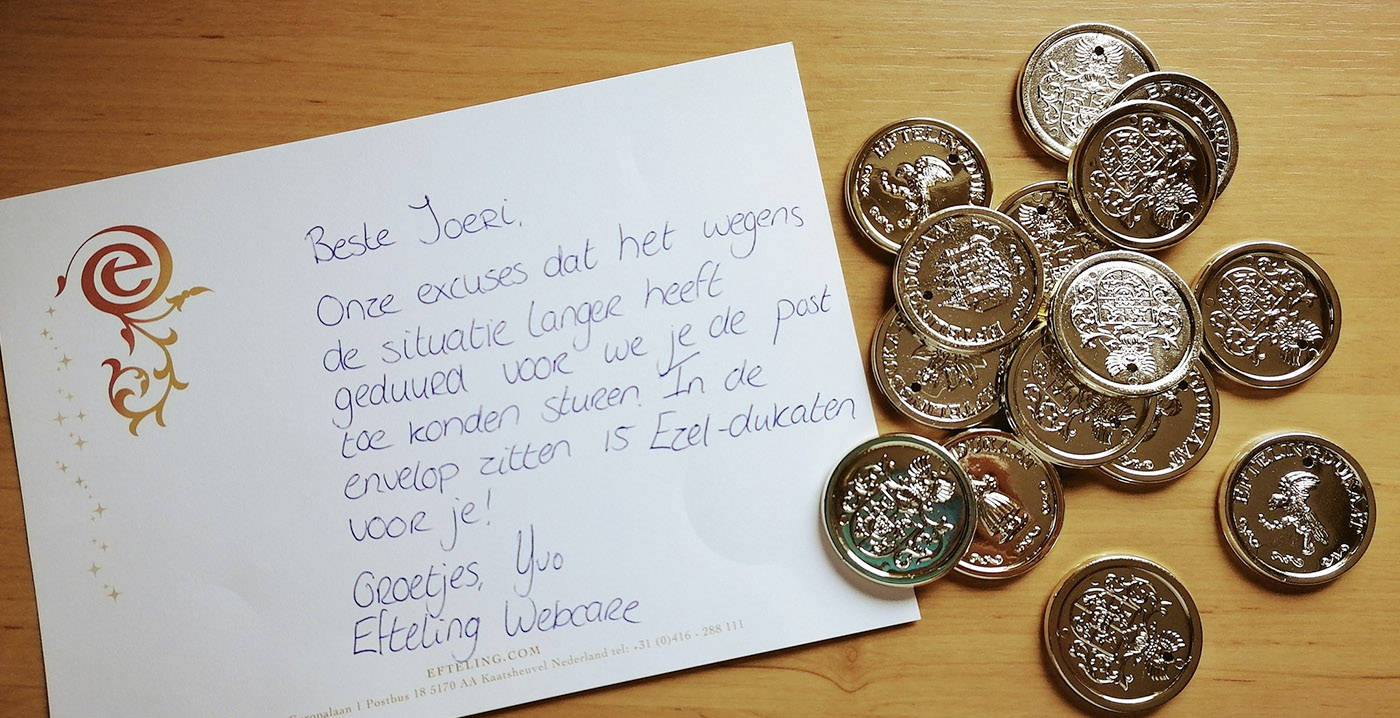 Beste Joeri,
Onze excuses dat het wegens
de situatie langer heeft
geduurd voor we je de post
toe konden sturen. In de
envelop zitten 15 Ezel-dukaten
voor je!
Groetjes, Yvo
Efteling Webcare
EFTELING.COM
1 Postbus 18 5170 AA Kaatsheuvel Nederland tel: +31 (0)416 - 288 111
e
EFTELINGDUKAAT